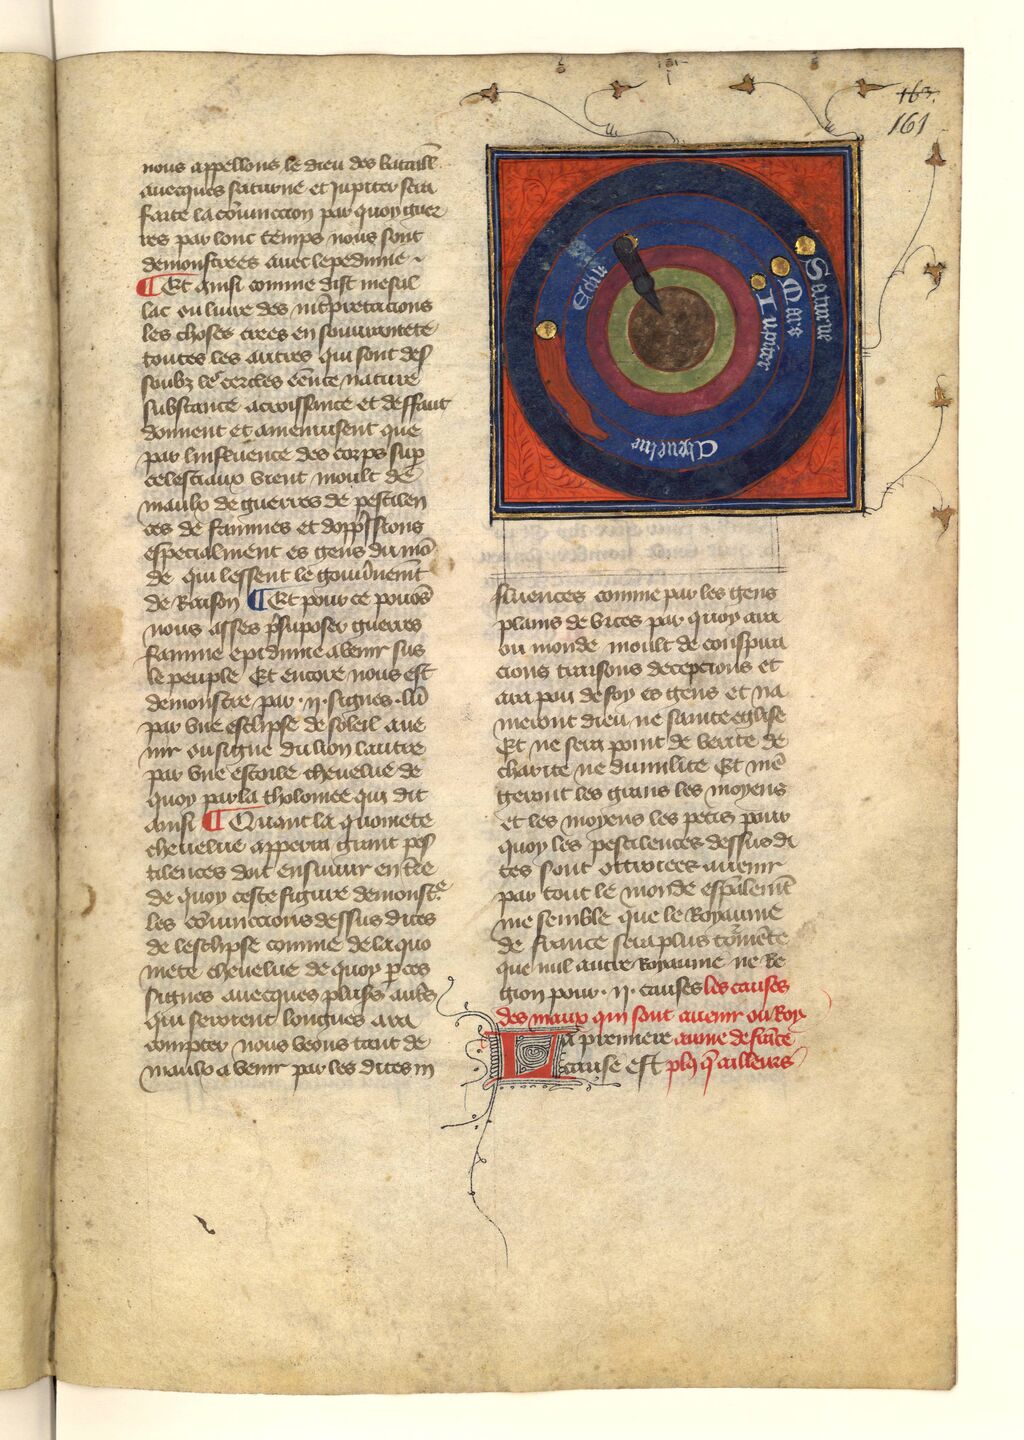 163.
161
nous appellons le dieu des bataill̄
auecques saturne et Jupiter sera
faicte la cōiunction par quoy guer
res par lonc temps nous sont
demonstrees auec lepedimie
¶ Et ainsi comme dist mesal
lac ou liure des nterpretacions
les choses crees en souurainete
toutes les autres qui sont des
soubz le cercles nature
substance acroissance et deffaut
donnent et amenuisent que
par linfluence des corps sup
celestiaux vient moult de
maulx de guerres de pestilen
ces de famines et doppssions
especialment es gens du mō
de qui lessent le gouūnemēt
de Raison ¶ Et pour ce pouōs
nous asses psuposer guerres
famine epidimie auenir sus
le peuple Et encore nous est
demonstre par .ii. signes .lū
par vne esclipse de soleil aue
nir ou signe du lion lautre
par vne estoile cheuelue de
quoy parla tholomee qui dit
ainsi ¶ Quant la quomete
cheuelue apperra grant pes
tilences doit ensuiuir en tr̄e
de quoy ceste figure demonstre
les cōiunccions dessus dites
de lesclipse comme de la quo
mete cheuelue de quoy p ces
signes auecques plus̄s aut̄s
qui seroient longues a ra
compter nous veons tant de
maulx a venir par les dites in
Saturne
Mars
Iupiter
Cheuelue
fluences comme par les gens
plains de vices par quoy ara
ou monde moult de conspira
cions traisons decepcions et
ara pou de foy es gens et na
meront dieu ne sainte eglise
Et ne sera point de verite de
charite ne dumilite Et mē
geront les grans les moyens
et les moyens les petis pour
quoy les pestilences dessus di
tes sont ottroiees auenir
par tout le monde esp̄alemēt
me semble que le Royaume
de france sera plus tormēte
que nul autre Royaume ne Re
gion pour .ii. causes les causes
des maux qui sont auenir ou Roy
La premiere aume de frāce
cause est plꝰ q̄ ailleurs